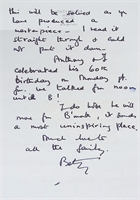 this will be solved as you
have produced a
masterpiece - I read it
straight through & could
not put it down.
Anthony
celebrated his 60th
birthday on Thursday pt.
for we talked from noon
until 8!
I do hope he will
move from B'mouth, it sounds
a most uninspiring place.
Much love to
all the family